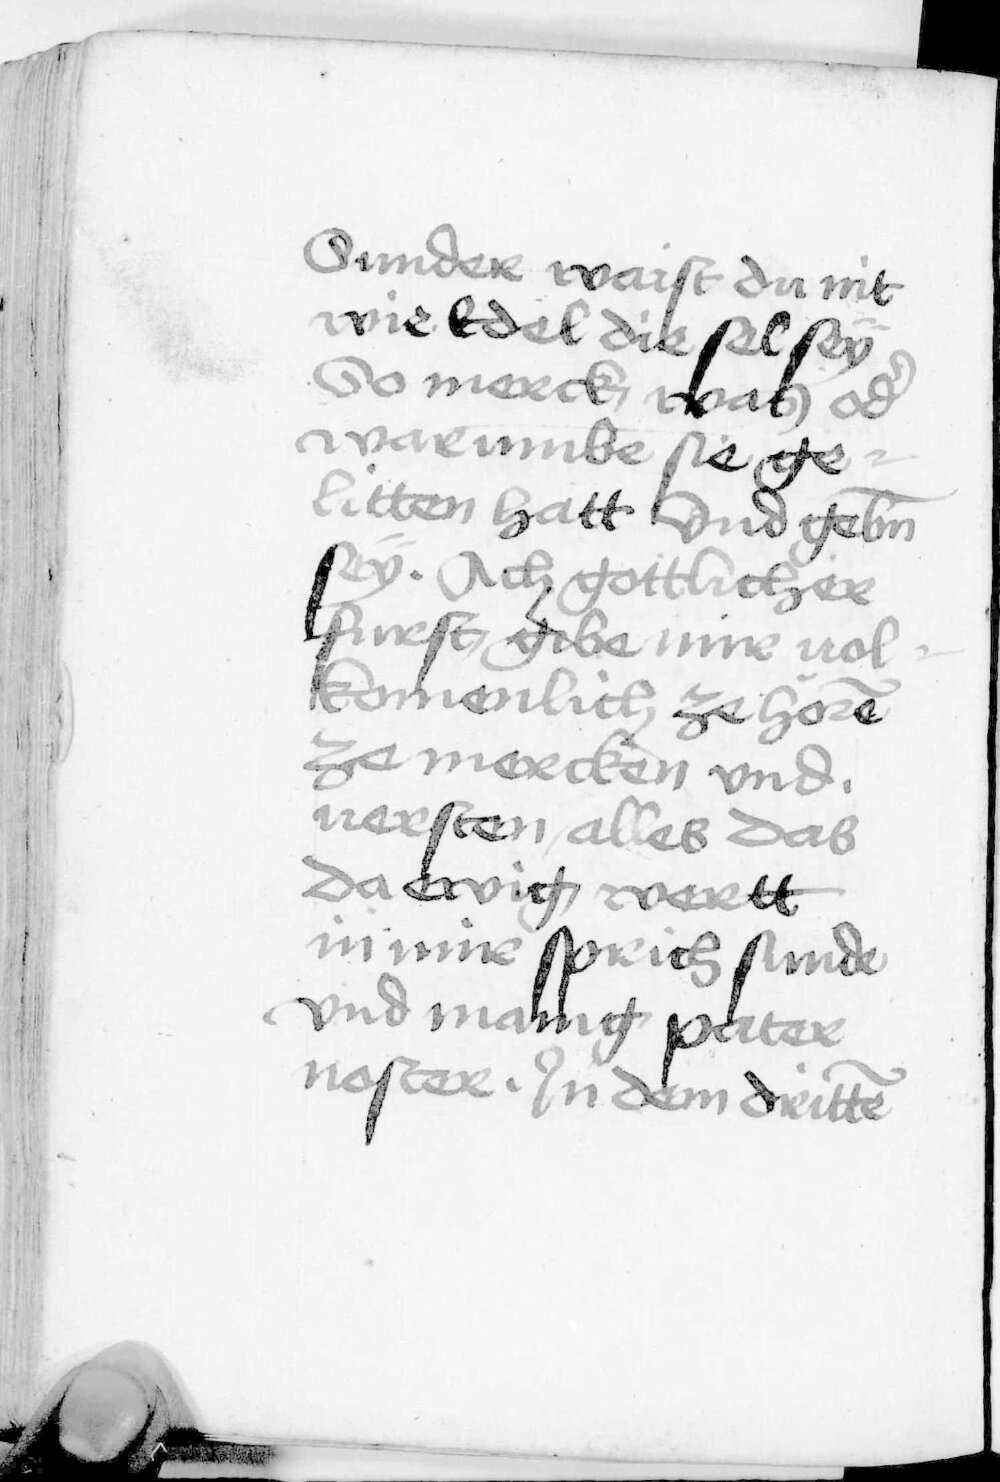 Sunder waist du nit
wie edel die sel seÿ
So merck was od͛
warumbe sie ge-
litten hatt vnd gebn̄
seÿ. Ach gottlicher
furst gibe mir uol-
komenlich ze hörē
ze mercken vnd.
uersten alles das
da ewig wertt
in mir sprich sunde
vnd manig pater
noster. In dem drittē